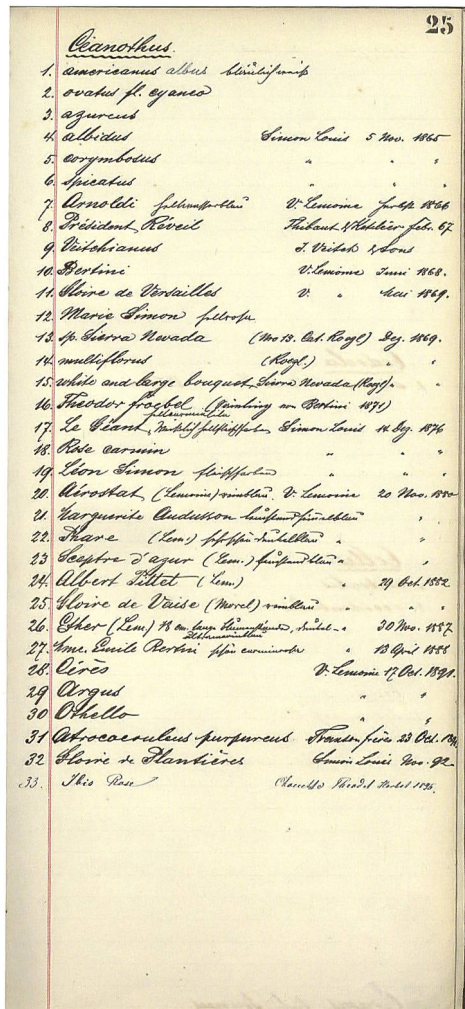 25
Céanothus.
1. americanus albus bläulichweiß
2. ovatus fl. cyaneo
3. azureus
4. albidus Simon Louis 5 Nov. 1865
5. corymbosus " " "
6. spicatus " " "
7. Arnoldi hellwasserblau V. Lemoine 1866
8. Président Réveil Thibaut & Ketelier Febr. 67
9. Veitchianus J. Veitch & Sons
10. Bertini V. Lemoine Juni 1868.
11. Gloire de Versailles V. " Mai 1869.
12. Marie Simon hellrosa
13. sp. Sierra Nevada (No 13. Oct. Roezl) Dez. 1869.
14. multiflorus (Roezl.) " "
15. white and large bouquet Sierra Nevada (Roezl) " "
16. Theodor Froebel von Bertini 1871)
17. Le Géant Simon Louis 14 Dez. 1876
18. Rose carmin " " "
19. Léon Simon fleischfarben " " "
20. Aérostat (Lemoine) V. Lemoine 20 Nov. 1880
21. Marguerite Audusson "
22. Phare (Lem.) dunkelblau " "
23 Sceptre d'azur (Lem.) " "
24. Albert Pittet (Lem) 29 Oct. 1882
25. Gloire de Vaise (Morel) " " "
26. Esther (Lem) 18 cm. lange dunkel- " 30 Nov. 1887
27. Mme. Emile Bertini schön carminrosa " 13 April 1888
28. Cérès V. Lemoine 17 Oct. 1891.
29 Argus " "
30 Othello " "
31 Atrocoeruleus purpureus Transon frères 23 Oct.
32 Gloire de Plantières Simon Louis Nov. 92
33. Ibis Rose Herbst 1895.